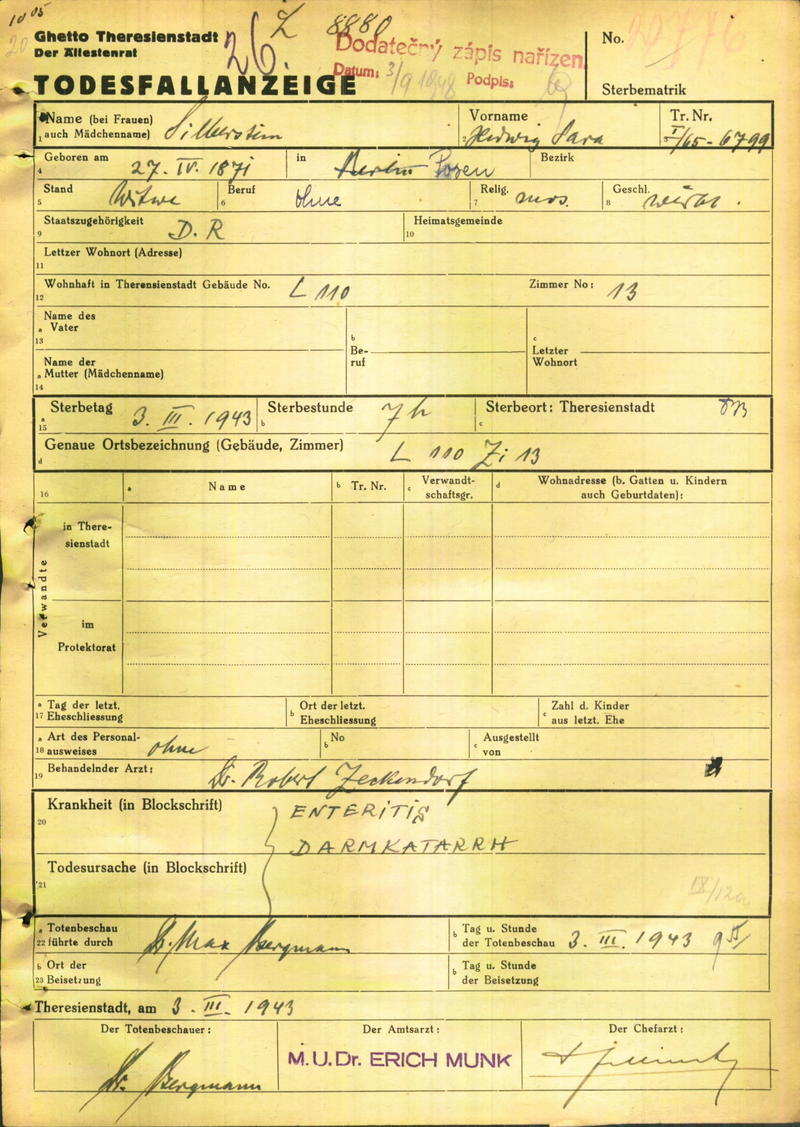 10 05
Ghetto Theresienstadt
Der Ältestenrat
26. Z 8880
Dodatečný zápis nařízen
Datum: 3/9 1948 Podpis:
No.
TODESFALLANZEIGE
Sterbematrik
Name (bei Frauen)
1 auch Mädchenname) Silberstein
Vorname
2 Hedwig Sara
Tr. Nr.
3 I/65-6799
Geboren am
4 27. IV. 1871 in Berlin Posen Bezirk
Stand
5 Witwe
Beruf
6 ohne
Relig.
7 mos.
Geschl.
8 weibl.
Staatszugehörigkeit
9 D. R
Heimatsgemeinde
10
Lettzer Wohnort (Adresse)
11
Wohnhaft in Theresienstadt Gebäude No. L 110 Zimmer No: 13
12
Name des
a Vater
13
b
Be-
ruf
c
Letzter
Wohnort
Name der
a Mutter (Mädchenname)
14
Sterbetag 3. III. 1943
a
15
b Sterbestunde 7 h
Sterbeort: Theresienstadt
c
Genaue Ortsbezeichnung (Gebäude, Zimmer) L 110 Zi 13
d
16
a Name
b Tr. Nr.
c Verwandt-
schaftsgr.
d Wohnadresse (b. Gatten u. Kindern
auch Geburtdaten):
Verwandte
in There-
sienstadt
im
Protektorat
a Tag der letzt.
17 Eheschliessung
b Ort der letzt.
Eheschliessung
c Zahl d. Kinder
aus letzt. Ehe
a Art des Personal-
18 ausweises ohne
b No
c Ausgestellt
von
19 Behandelnder Arzt: Dr. Robert Zeckendorf
Krankheit (in Blockschrift)
20
ENTERITIS
DARMKATARRH
Todesursache (in Blockschrift)
21
IX/12a
a Totenbeschau
22 führte durch Dr. Max Bergmann
b Tag u. Stunde
der Totenbeschau 3. III. 1943
b Ort der
23 Beisetzung
b Tag u. Stunde
der Beisetzung
Theresienstadt, am 3. III. 1943
Der Totenbeschauer:
Dr. Bergmann
Der Amtsarzt:
M.U.Dr. ERICH MUNK
Der Chefarzt: